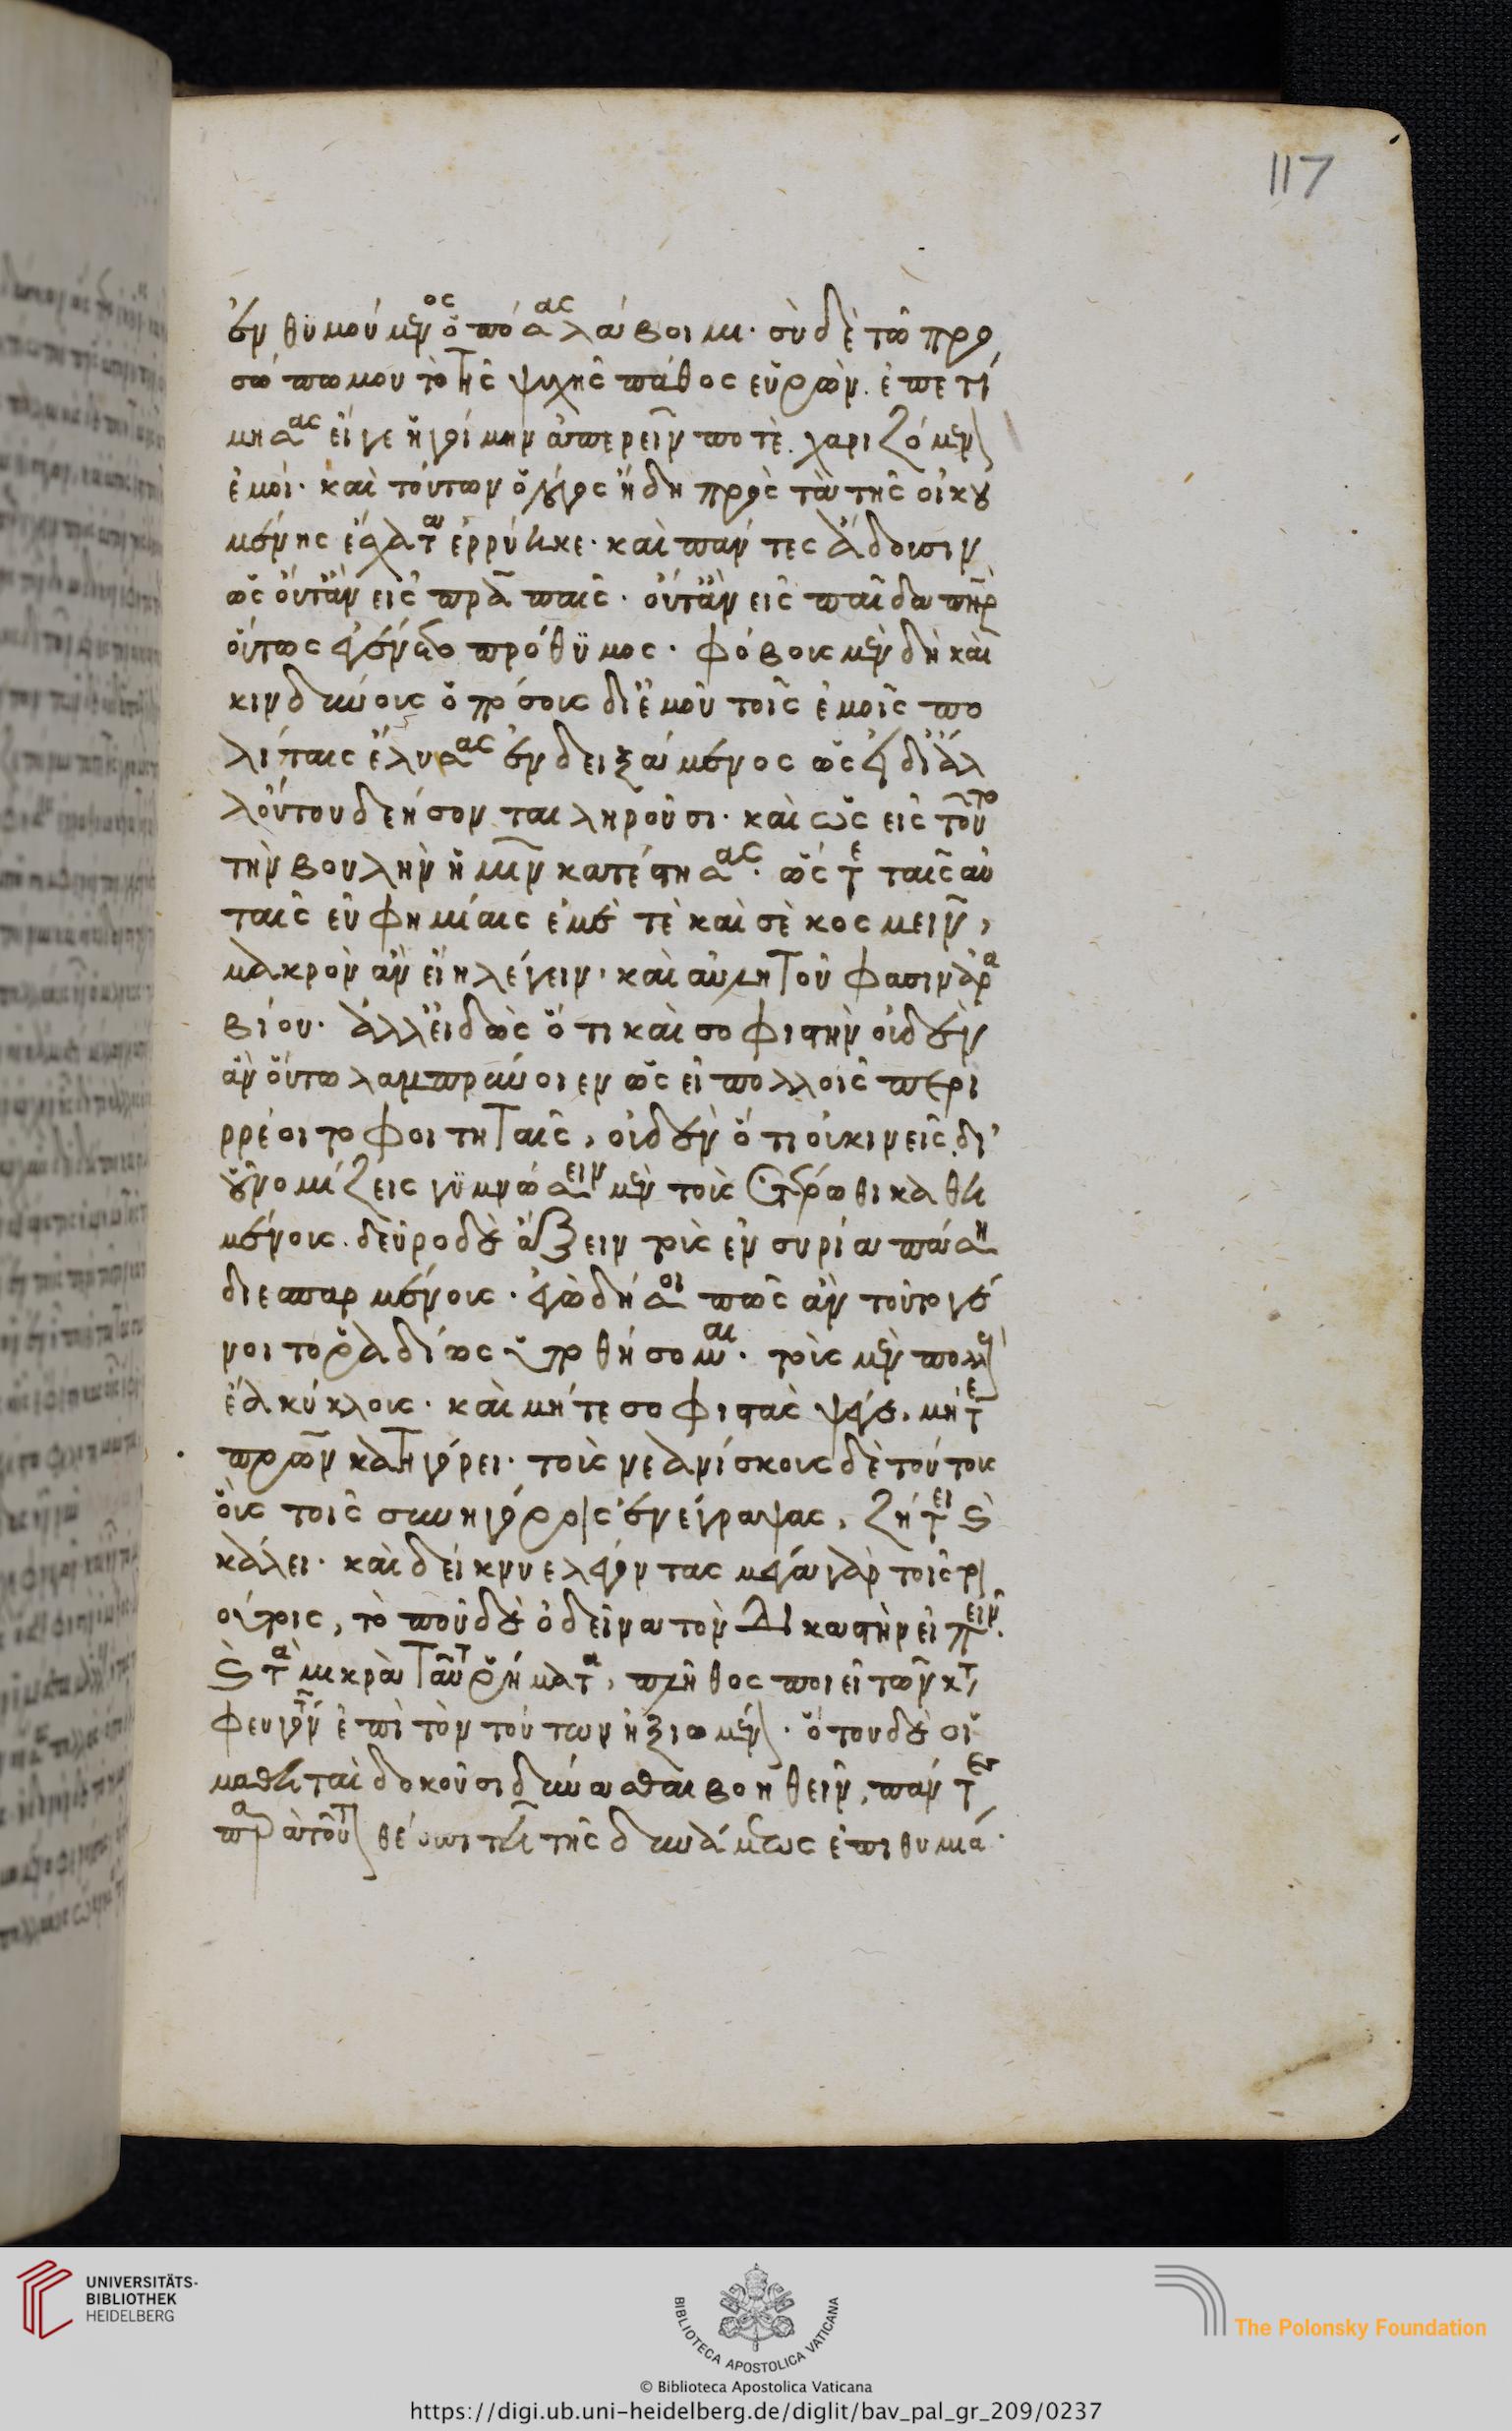 ἐνθυμούμενος ὁπόσας λάβοιμι· σὺ δὲ τῶ προ
σώπω μου τὸ τῆς ψυχῆς πάθος εὑρών· ἐπετί
μησας εἴγε ἡγοίμην ἀπερεῖν ποτὲ χαριζόμενον
ἐμοί· καὶ τούτων ὁ λόγος ἤδη πρὸς τὰ τῆς οἰκου
μένης ἔσχατα ἐρρύηκε· καὶ πάντες ἄδουσιν
ὡς οὔτ' ἂν εἰς πατέρα παῖς· οὔτ' ἂν εἰς παῖδα πατὴρ
οὕτως ἐγένετο πρόθυμος· φόβοις μὲν δὴ καὶ
κινδύνοις ὁπόσοις δι' ἐμοῦ τοῖς ἐμοῖς πο
λίταις ἔλυσας ἐνδειξάμενος ὡς εἰ δι' ἄλ
λου του δεήσονται ληροῦσι· καὶ ὡς εἰς τοῦτο
τὴν βουλὴν ἡμῖν κατέστησας· ὥς τε ταῖς αὐ
ταῖς εὐφημίαις ἐμέ τὲ καὶ σὲ κοσμεῖν,
μακρὸν ἂν εἴη λέγειν· καὶ αὐλητοῦ φασιν ἄρα
βίου· ἀλλ' εἰδὼς ὅτι καὶ σοφιστὴν οὐδὲν
ἂν οὕτω λαμπρύνοιεν ὡς εἰ πολλοῖς περι
ρρέοιτο φοιτηταῖς, οὐδὲν ὅ τι οὐ κινεῖς δι'
οὗ νομίζεις γυμνώσειν μὲν τοὺς ἑτέρωθι καθη
μένους. δεῦρο δὲ ἄξειν τοὺς ἐν συρία πάση
διεσπαρμένους· ἐγὼ δή σοι πῶς ἂν τοῦτο γέ
νοιτο ῥαδίως ὑποθήσομαι· τοὺς μὲν πολλοὺς
ἔα κύκλους· καὶ μήτε σοφιστὰς ψέγε, μήτε
πόρων κατηγόρει· τοὺς νεανίσκους δὲ τούτους
οὓς τοῖς συνηγόροις ἐνέγραψας, ζήτει καὶ
κάλει· καὶ δείκνυε λέγοντας μέγα γὰρ τοῖς τοι
ούτοις, τὸ ποῦ δὲ ὁ δεῖνα τὸν δικαστὴν εἰπεῖν.
καὶ τὰ μικρὰ ταῦτα ῥήματα, πλῆθος ποιεῖ τῶν κατα
φευγόντων ἐπὶ τὸν τούτων ἠξιωμένον· ὅτου δὲ οἱ
μαθηταὶ δοκοῦσι δύνασθαι βοηθεῖν, πάντες
παρὰ τοῦτον θέουσι τῆ τῆς δυνάμεως ἐπιθυμία·
117
UNIVERSITÄTS-
BIBLIOTHEK
HEIDELBERG
BIBLIOTECA APOSTOLICA VATICANA
The Polonsky Foundation
© Biblioteca Apostolica Vaticana
https://digi.ub.uni-heidelberg.de/diglit/bav_pal_gr_209/0237